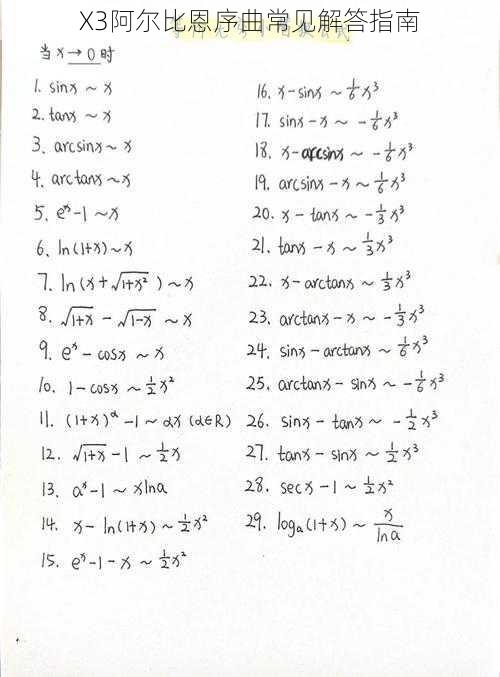 X3阿尔比恩序曲常见解答指南
当 x→0 时
1. sinx ~ x
2. tanx ~ x
3. arcsinx ~ x
4. arctanx ~ x
5. eˣ-1 ~ x
6. ln(1+x) ~ x
7. ln(x+√(1+x²)) ~ x
8. √(1+x) - √(1-x) ~ x
9. eˣ - cosx ~ x
10. 1-cosx ~ 1/2 x²
11. (1+x)^α -1 ~ αx (α∈R)
12. √(1+x) -1 ~ 1/2 x
13. aˣ-1 ~ xlna
14. x-ln(1+x) ~ 1/2 x²
15. eˣ-1-x ~ 1/2 x²
16. x-sinx ~ 1/6 x³
17. sinx-x ~ -1/6 x³
18. x-arcsinx ~ -1/6 x³
19. arcsinx-x ~ 1/6 x³
20. x-tanx ~ -1/3 x³
21. tanx-x ~ 1/3 x³
22. x-arctanx ~ 1/3 x³
23. arctanx-x ~ -1/3 x³
24. sinx-arctanx ~ 1/6 x³
25. arctanx-sinx ~ -1/6 x³
26. sinx-tanx ~ -1/2 x³
27. tanx-sinx ~ 1/2 x³
28. secx-1 ~ 1/2 x²
29. logₐ(1+x) ~ x/lna